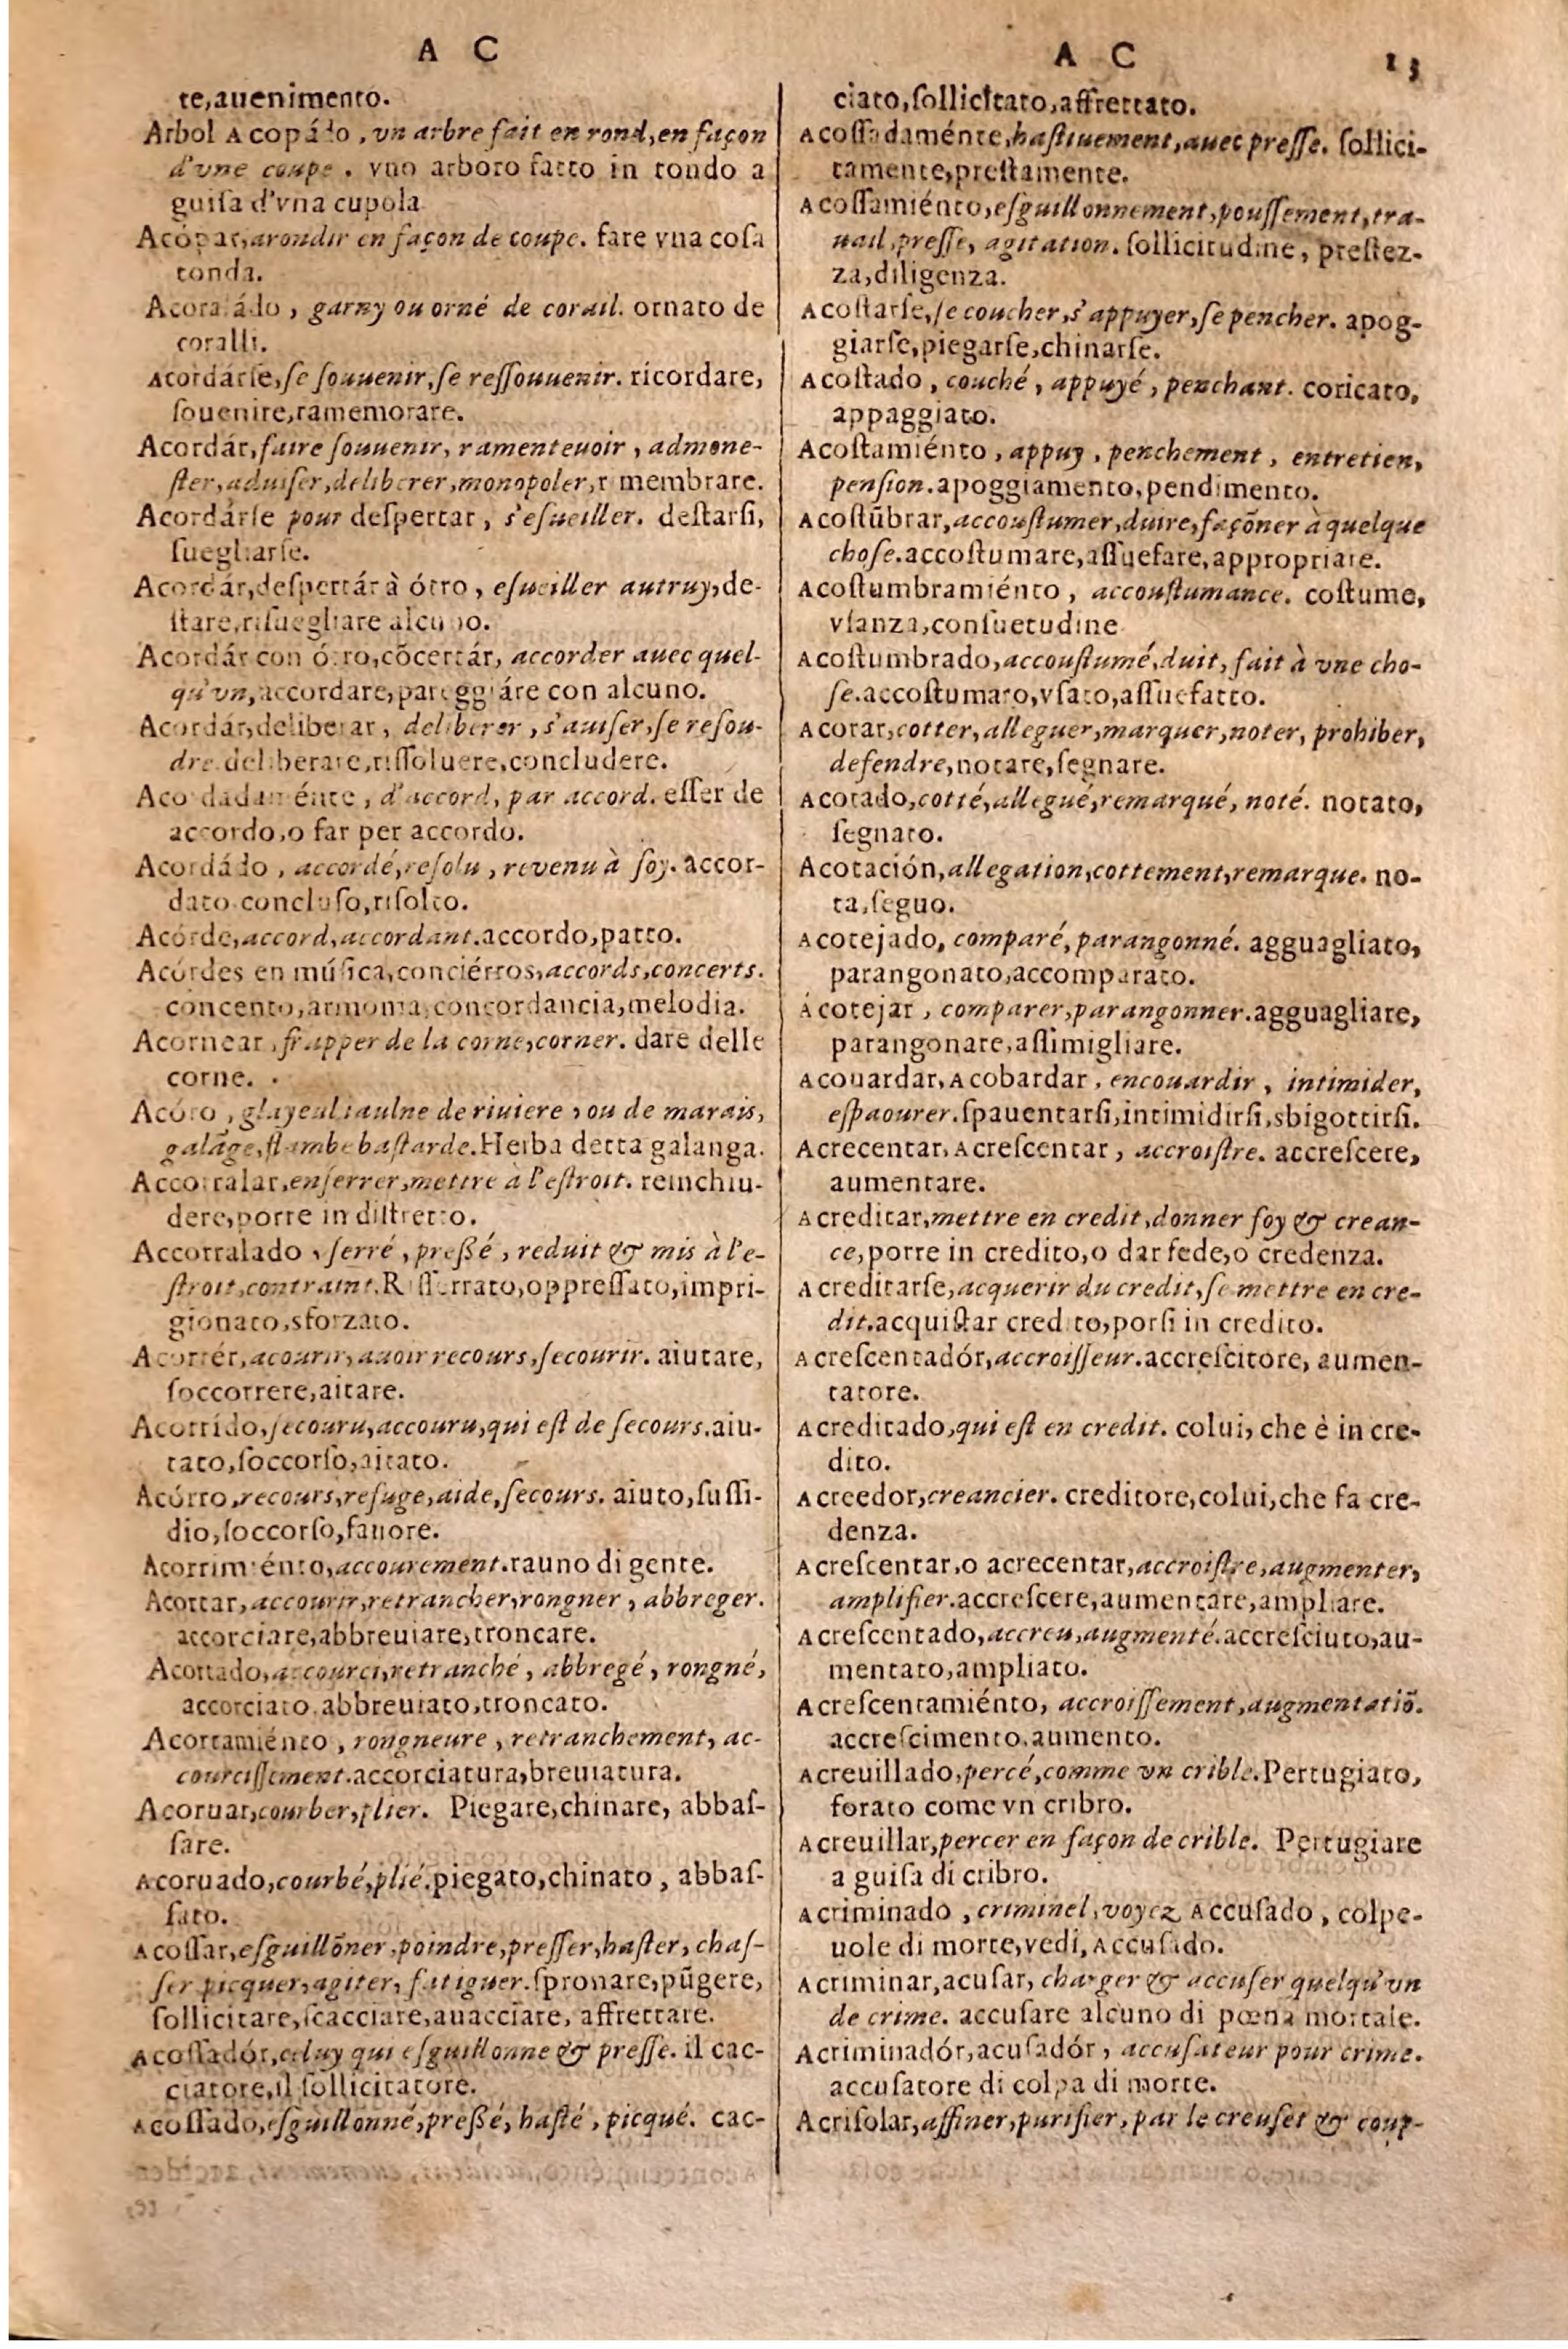 A C
te,auenimento.
Arbol Acopádo, vn arbre fait en rond,en façon
d'vne coupe. vno arboro fatto in tondo a
guiſa d'vna cupola
Acópar,arondir en façon de coupe. fare vna coſa
tonda.
Acoraládo, garny ou orné de corail. ornato de
coralli.
Acordárſe,ſe ſouuenir,ſe reſſouuenir. ricordare,
ſouenire,ramemorare.
Acordár,faire ſouuenir, ramenteuoir, admone-
ſter,aduiſer,deliberer,monopoler,rimembrare.
Acordárſe pour deſpertar, s'eſueiller. deſtarſi,
ſuegliarſe.
Acordár,deſpertár à ótro, eſueiller autruy,de-
ſtare,riſuegliare alcuno.
Acordár con ótro,cõcertár, accorder auec quel-
qu'vn,accordare,pareggiáre con alcuno.
Acordár,deliberar, deliberer, s'auiſer,ſe reſou-
dre.deliberare,riſſoluere,concludere.
Acordadaménte, d'accord, par accord. eſſer de
accordo,o far per accordo.
Acordádo, accordé,reſolu, revenu à ſoy. accor-
dato.concluſo,riſolto.
Acórde,accord,accordant.accordo,patto.
Acórdes en múſica,conciértos,accords,concerts.
concento,armonia,concordancia,melodia.
Acornear,frapper de la corne,corner. dare delle
corne.
Acóro, glayeul:aulne de riuiere, ou de marais,
galãge,flambe baſtarde.Herba detta galanga.
Accorralar,enſerrer,mettre à l'eſtroit. reinchiu-
dere,porre in diſtretto.
Accorralado, ſerré, preßé, reduit & mis à l'e-
ſtroit,contraint.Riſſerrato,oppreſſato,impri-
gionato,sforzato.
Acorrér,acourir,auoir recours,ſecourir. aiutare,
ſoccorrere,aitare.
Acorrído,ſecouru,accouru,qui eſt de ſecours.aiu-
tato,ſoccorſo,aitato.
Acórro,recours,refuge,aide,ſecours. aiuto,ſuſſi-
dio,ſoccorſo,fauore.
Acorrimiénto,accourement.rauno di gente.
Acortar,accourir,retrancher,rongner, abbreger.
accorciare,abbreuiare,troncare.
Acortado,accourci,retranché, abbregé, rongné,
accorciato.abbreuiato,troncato.
Acortamiénto, rongneure, retranchement, ac-
courciſſement.accorciatura,breuiatura.
Acoruar,courber,plier. Piegare,chinare, abbaſ-
ſare.
Acoruado,courbé,plié.piegato,chinato, abbaſ-
ſato.
Acoſſar,eſguillõner,poindre,preſſer,haſter, chaſ-
ſer picquer,agiter, fatiguer.ſpronare,pũgere,
ſollicitare,ſcacciare,auacciare, affrettare.
Acoſſadór,celuy qui eſguillonne & preſſe. il cac-
ciatore,il ſollicitatore.
Acoſſado,eſguillonné,preßé, haſté, picqué. cac-
A C 13
ciato,ſollicitato,affrettato.
Acoſſadaménte,haſtiuement,auec preſſe. ſollici-
tamente,preſtamente.
Acoſſamiénto,eſguillonnement,pouſſement,tra-
uail,preſſe, agitation. ſollicitudine, preſtez-
za,diligenza.
Acoſtarſe,ſe coucher,s'appuyer,ſe pencher. apog-
giarſe,piegarſe,chinarſe.
Acoſtado, couché, appuyé, penchant. coricato,
appaggiato.
Acoſtamiénto, appuy, penchement, entretien,
penſion.apoggiamento,pendimento.
Acoſtũbrar,accouſtumer,duire,façõner à quelque
choſe.accoſtumare,aſſuefare,appropriare.
Acoſtumbramiénto, accouſtumance. coſtume,
vſanza,conſuetudine
Acoſtumbrado,accouſtumé,duit, fait à vne cho-
ſe.accoſtumato,vſato,aſſuefatto.
Acotar,cotter,alleguer,marquer,noter, prohiber,
defendre,notare,ſegnare.
Acotado,cotté,allegué,remarqué, noté. notato,
ſegnato.
Acotación,allegation,cottement,remarque. no-
ta,ſeguo.
Acotejado, comparé, parangonné. agguagliato,
parangonato,accomparato.
Acotejar, comparer,parangonner.agguagliare,
parangonare,aſſimigliare.
Acouardar, Acobardar, encouardir, intimider,
eſpaourer.ſpauentarſi,intimidirſi,sbigottirſi.
Acrecentar, Acreſcentar, accroiſtre. accreſcere,
aumentare.
Acreditar,mettre en credit,donner foy & crean-
ce,porre in credito,o dar fede,o credenza.
Acreditarſe,acquerir du credit,ſe mettre en cre-
dit.acquiſtar credito,porſi in credito.
Acreſcentadór,accroiſſeur.accreſcitore, aumen-
tatore.
Acreditado,qui eſt en credit. colui, che è in cre-
dito.
Acreedor,creancier. creditore,colui,che fa cre-
denza.
Acreſcentar,o acrecentar,accroiſtre,augmenter,
amplifier.accreſcere,aumentare,ampliare.
Acreſcentado,accreu,augmenté.accreſciuto,au-
mentato,ampliato.
Acreſcentamiénto, accroiſſement,augmentatiõ.
accreſcimento,aumento.
Acreuillado,percé,comme vn crible.Pertugiato,
forato come vn cribro.
Acreuillar,percer en façon de crible. Pertugiare
a guiſa di cribro.
Acriminado, criminel,voyez Accuſado, colpe-
uole di morte,vedi, Accuſado.
Acriminar,acuſar, charger & accuſer quelqu'vn
de crime. accuſare alcuno di pœna mortale.
Acriminadór,acuſadór, accuſateur pour crime.
accuſatore di colpa di morte.
Acriſolar,affiner,purifier, par le creuſet & coup-